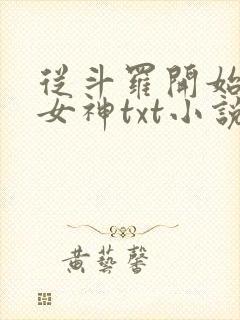 從斗羅開始
女神txt小說
黃藝馨